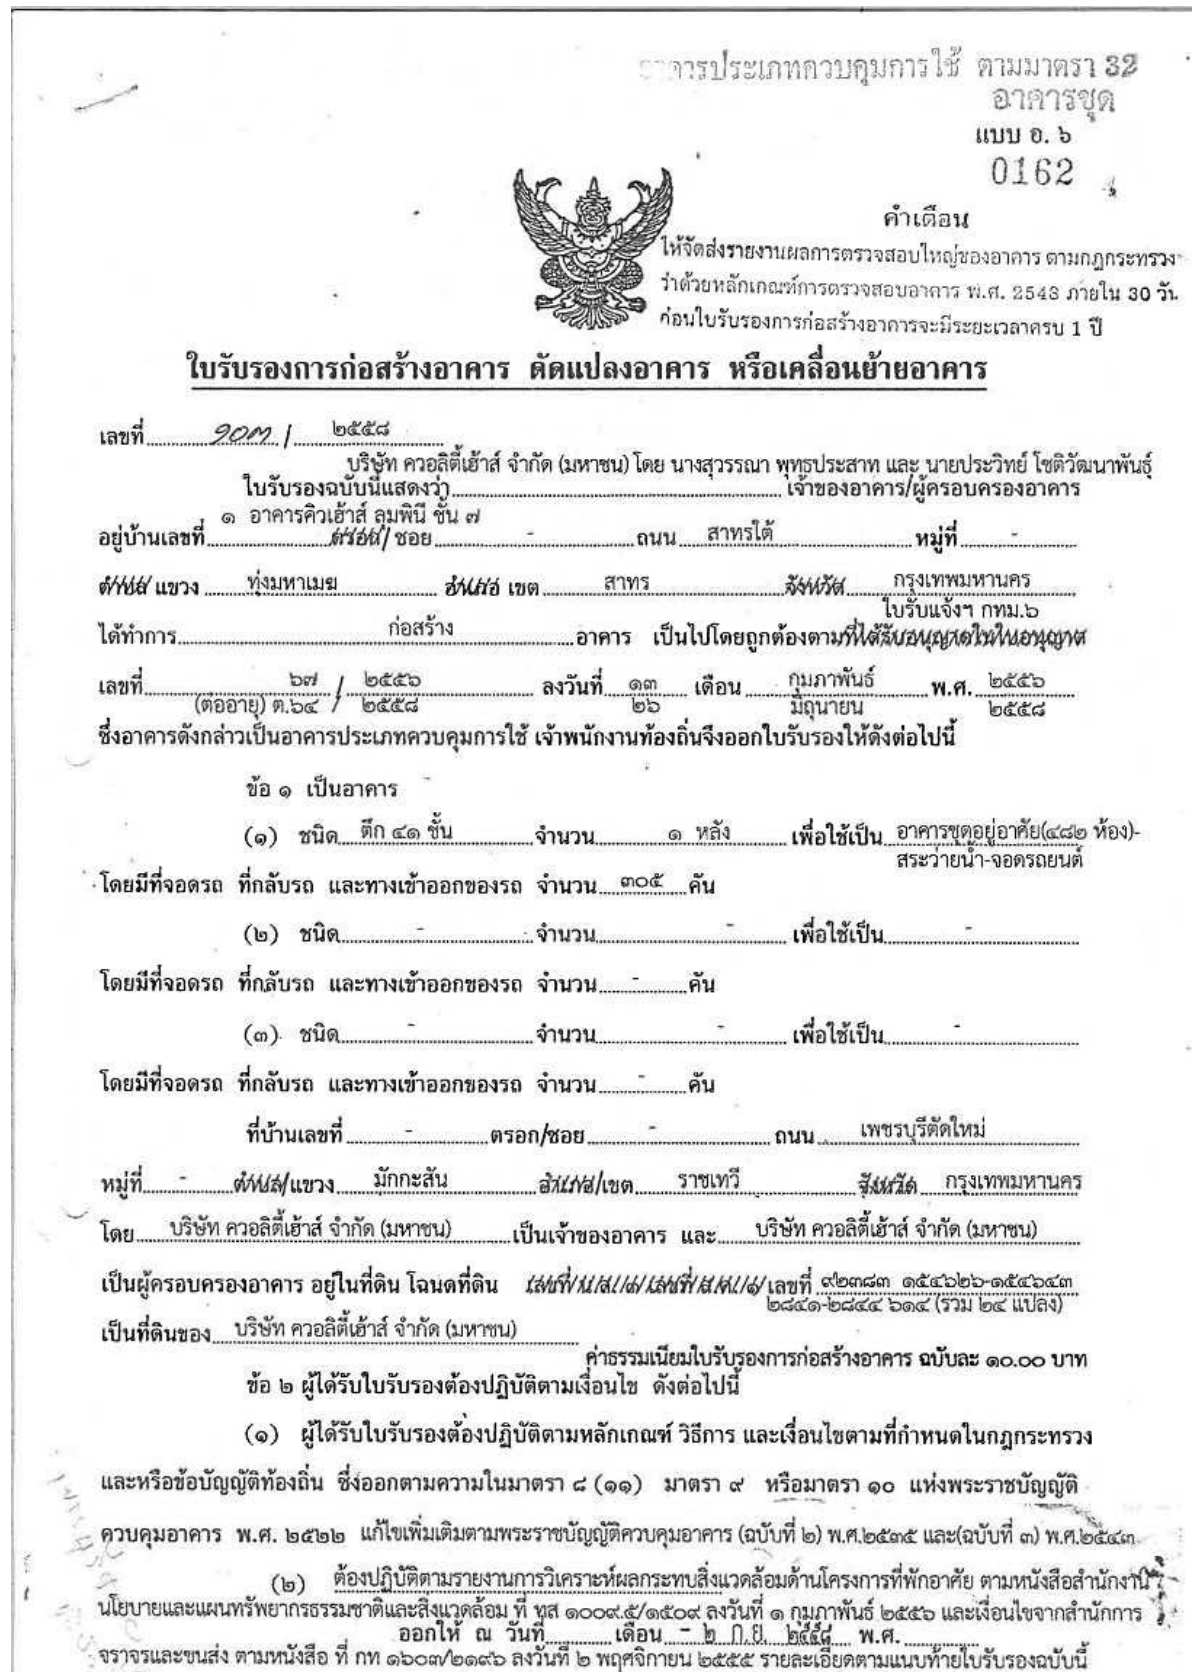 อาคารประเภทควบคุมการใช้ ตามมาตรา 32
อาคารชุด
แบบ อ. ๖
0162
คำเตือน
ให้จัดส่งรายงานผลการตรวจสอบใหญ่ของอาคาร ตามกฎกระทรวง
ว่าด้วยหลักเกณฑ์การตรวจสอบอาคาร พ.ศ. 2543 ภายใน 30 วัน
ก่อนใบรับรองการก่อสร้างอาคารจะมีระยะเวลาครบ 1 ปี
ใบรับรองการก่อสร้างอาคาร ดัดแปลงอาคาร หรือเคลื่อนย้ายอาคาร
เลขที่ ๑๐๓ / ๒๕๕๘
บริษัท ควอลิตี้เฮ้าส์ จำกัด (มหาชน) โดย นางสุวรรณา พุทธประสาท และ นายประวิทย์ โชติวัฒนาพันธุ์
ใบรับรองฉบับนี้แสดงว่า เจ้าของอาคาร/ผู้ครอบครองอาคาร
๑ อาคารคิวเฮ้าส์ ลุมพินี ชั้น ๗
อยู่บ้านเลขที่ ตรอก/ ซอย - ถนน สาทรใต้ หมู่ที่ -
ตำบล/ แขวง ทุ่งมหาเมฆ อำเภอ เขต สาทร จังหวัด กรุงเทพมหานคร
ใบรับแจ้งฯ กทม.๖
ได้ทำการ ก่อสร้าง อาคาร เป็นไปโดยถูกต้องตามที่ได้รับอนุญาตในใบอนุญาต
เลขที่ ๖๗ / ๒๕๕๖ ลงวันที่ ๑๓ เดือน กุมภาพันธ์ พ.ศ. ๒๕๕๖
(ต่ออายุ) ต.๖๔ / ๒๕๕๘ ๒๖ มิถุนายน ๒๕๕๘
ซึ่งอาคารดังกล่าวเป็นอาคารประเภทควบคุมการใช้ เจ้าพนักงานท้องถิ่นจึงออกใบรับรองให้ดังต่อไปนี้
ข้อ ๑ เป็นอาคาร
(๑) ชนิด ตึก ๔๑ ชั้น จำนวน ๑ หลัง เพื่อใช้เป็น อาคารชุดอยู่อาศัย(๔๘๒ ห้อง)-
สระว่ายน้ำ-จอดรถยนต์
โดยมีที่จอดรถ ที่กลับรถ และทางเข้าออกของรถ จำนวน ๓๐๕ คัน
(๒) ชนิด - จำนวน - เพื่อใช้เป็น -
โดยมีที่จอดรถ ที่กลับรถ และทางเข้าออกของรถ จำนวน - คัน
(๓) ชนิด - จำนวน - เพื่อใช้เป็น -
โดยมีที่จอดรถ ที่กลับรถ และทางเข้าออกของรถ จำนวน - คัน
ที่บ้านเลขที่ - ตรอก/ซอย - ถนน เพชรบุรีตัดใหม่
หมู่ที่ - ตำบล/แขวง มักกะสัน อำเภอ/เขต ราชเทวี จังหวัด กรุงเทพมหานคร
โดย บริษัท ควอลิตี้เฮ้าส์ จำกัด (มหาชน) เป็นเจ้าของอาคาร และ บริษัท ควอลิตี้เฮ้าส์ จำกัด (มหาชน)
เป็นผู้ครอบครองอาคาร อยู่ในที่ดิน โฉนดที่ดิน เลขที่/น.ส.๓/เลขที่/ส.ค.๑/ เลขที่ ๙๒๓๘๓ ๑๕๔๖๒๖-๑๕๔๖๔๓
๒๘๔๑-๒๘๔๔ ๖๑๔ (รวม ๒๔ แปลง)
เป็นที่ดินของ บริษัท ควอลิตี้เฮ้าส์ จำกัด (มหาชน)
ค่าธรรมเนียมใบรับรองการก่อสร้างอาคาร ฉบับละ ๑๐.๐๐ บาท
ข้อ ๒ ผู้ได้รับใบรับรองต้องปฏิบัติตามเงื่อนไข ดังต่อไปนี้
(๑) ผู้ได้รับใบรับรองต้องปฏิบัติตามหลักเกณฑ์ วิธีการ และเงื่อนไขตามที่กำหนดในกฎกระทรวง
และหรือข้อบัญญัติท้องถิ่น ซึ่งออกตามความในมาตรา ๘ (๑๑) มาตรา ๙ หรือมาตรา ๑๐ แห่งพระราชบัญญัติ
ควบคุมอาคาร พ.ศ. ๒๕๒๒ แก้ไขเพิ่มเติมตามพระราชบัญญัติควบคุมอาคาร (ฉบับที่ ๒) พ.ศ.๒๕๓๕ และ(ฉบับที่ ๓) พ.ศ.๒๕๔๓
(๒) ต้องปฏิบัติตามรายงานการวิเคราะห์ผลกระทบสิ่งแวดล้อมด้านโครงการที่พักอาศัย ตามหนังสือสำนักงาน
นโยบายและแผนทรัพยากรธรรมชาติและสิ่งแวดล้อม ที่ ทส ๑๐๐๙.๕/๑๕๐๙ ลงวันที่ ๑ กุมภาพันธ์ ๒๕๕๖ และเงื่อนไขจากสำนักการ
ออกให้ ณ วันที่ เดือน - ๒ ก.ย. ๒๕๕๘ พ.ศ.
จราจรและขนส่ง ตามหนังสือ ที่ กท ๑๖๐๓/๒๑๙๖ ลงวันที่ ๒ พฤศจิกายน ๒๕๕๕ รายละเอียดตามแนบท้ายใบรับรองฉบับนี้